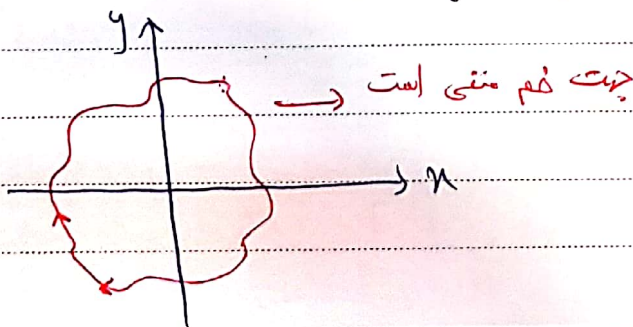 y
→ جهت خم منفی است
x